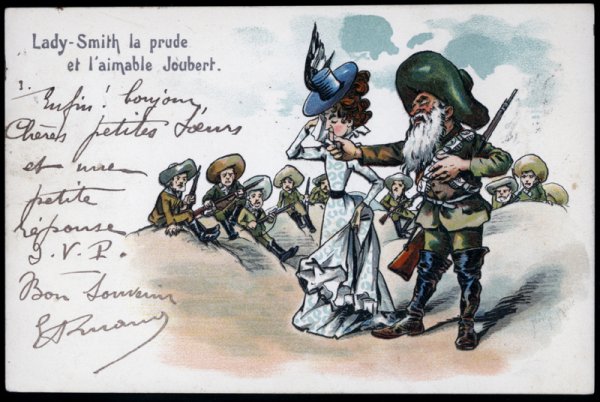 Lady-Smith la prude
et l'aimable Joubert.
1.
Enfin! bonjour,
Chères petites Sœurs
et une
petite
réponse
S.V.P.
Bon Souvenir